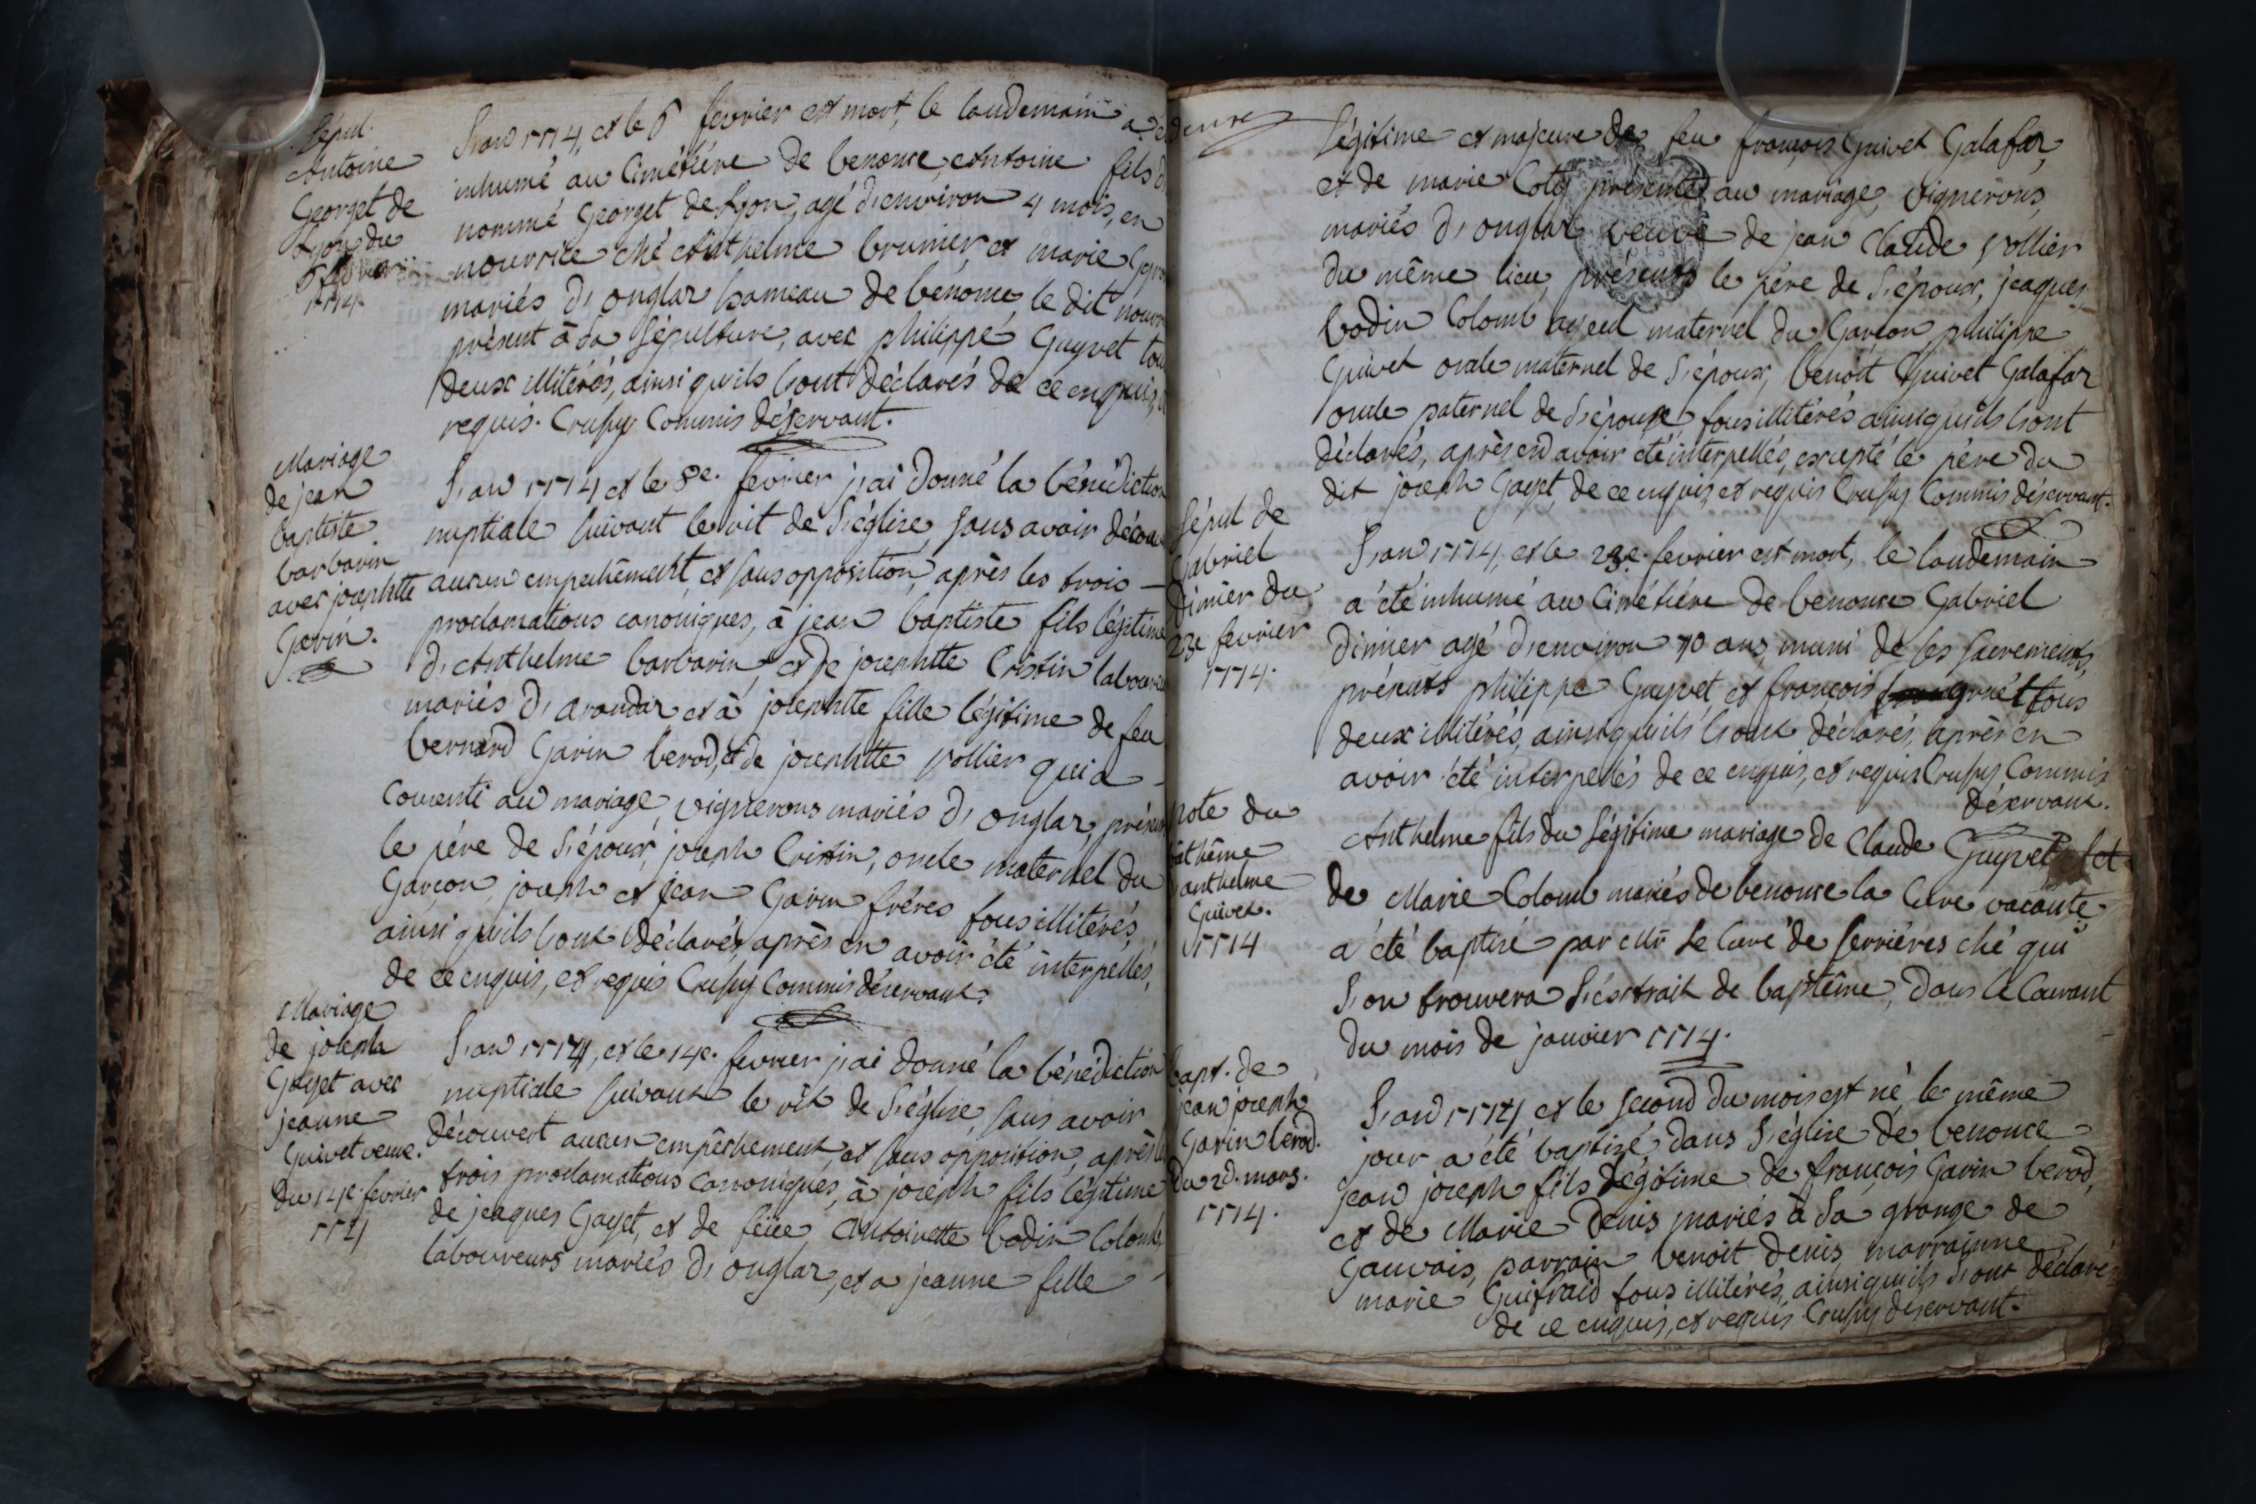 Sépul.
Antoine
Georget de
Lyon du
6 fevrier
1774.
L'an 1774, et le 6 fevrier est mort, le landemain a été
inhumé au Cimétiére de benonce, Antoine fils d
nommé Georget de Lyon, agé d'environ 4 mois, en
nourrice ché Anthelme brunier, et marie
mariés d'onglaz hameau de bénonce, le dit nourr
présent à sa sépulture, avec philippe Guyvet tou
deux illitérés, ainsi qu'ils l'ont déclarés de ce enquis, et
requis. Crussy Commis déservant.
Mariage
de jean
baptiste
barbarin
avec josephtte
Gavin.
L'an 1774 et le 8e. fevrier j'ai donné la bénédiction
nuptiale suivant le rit de l'église, sans avoir décou
aucun empechêment, et sans opposition, après les trois
proclamations canoniques, à jean baptiste fils légitime
d'Anthelme barbarin, et de josephtte Cristin laboure
mariés d'arandaz et à josephtte fille légitime de feu
bernard Gavin berod, et de josephtte Vollier qui a
consenti au mariage, vignerons mariés d'onglaz, présen
le pére de l'époux, joseph Cristin, oncle maternel du
Garçon, joseph et jean Gavin fréres tous illitérés,
ainsi qu'ils l'ont déclarés, après en avoir été interpellés,
de ce enquis, et requis Crussy Commis déservant.
Mariage
de joseph
Gayet avec
jeanne
Guivet veuve.
du 14e. fevrier
1774
L'an 1774, et le 14e. fevrier j'ai donné la bénédiction
nuptiale suivant le rit de l'église, sans avoir
découvert aucun empêchement, et sans opposition, après les
trois proclamations canoniques, à joseph fils légitime
de jeaques Gayet, et de feüe Antoinette bodin Colomb,
laboureurs mariés d'onglaz, et a jeanne fille
légitime et majeure de feu françois Guivet Galafaz,
et de marie Coty présente au mariage, vignerons,
mariés d'onglaz veuve de jean Claude Vollier
du même lieu, présents le pére de l'époux, jeaques
bodin Colomb ayeul maternel du Garcon philippe
Guivet oncle maternel de l'époux, benoit Guivet Galafaz
oncle paternel de l'épouse, tous illitérés ainsi qu'ils l'ont
déclarés, après en avoir été interpellés, excepté le pére du
dit joseph Gayet, de ce enquis, et requis Crussy Commis déservant.
Sépul de
Gabriel
Dimier du
23e fevrier
1774.
L'an 1774, et le 23e. fevrier est mort, le landemain
a été inhumé au Cimétiére de benonce Gabriel
Dimier agé d'environ 70 ans, muni de ses sacrements,
présents philippe Guyvet, et françois tous
deux illitérés, ainsi qu'ils l'ont déclarés, après en
avoir été interpellés de ce enquis, et requis Crussy Commis
déservant.
Note du
bathême
anthelme
Guivet.
1774
Anthelme fils du légitime mariage de Claude Guyvet et
de Marie Colomb mariés de benonce la Cure vacante
a été baptisé par Mr le Curé de serriéres ché qui
l'on trouvera l'éxtrait de baptême, dans le Courant
du mois de janvier 1774.
bapt. de
jean joseph
Gavin berod.
du 2d. mars.
1774.
L'an 1774 et le second du mois est né le même
jour a été baptizé, dans l'église de benonce
jean joseph fils légitime de françois Gavin berod,
et de Marie Denis mariés à la grange de
Gauvais, parrain benoit denis, marrainne
marie Guifraid tous illitérés, ainsi qu'ils l'ont déclarés
de ce enquis, et requis Crussy déservant.